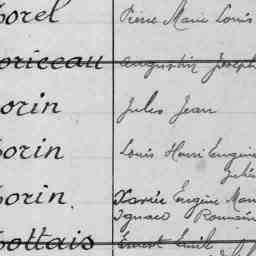 orel Pierre Marie Louis
oriceau Augustin Joseph
orin Jules Jean
orin Louis Henri Eugène
orin Xavier Eugène
Ignace Romain
ottais Ernest Emile